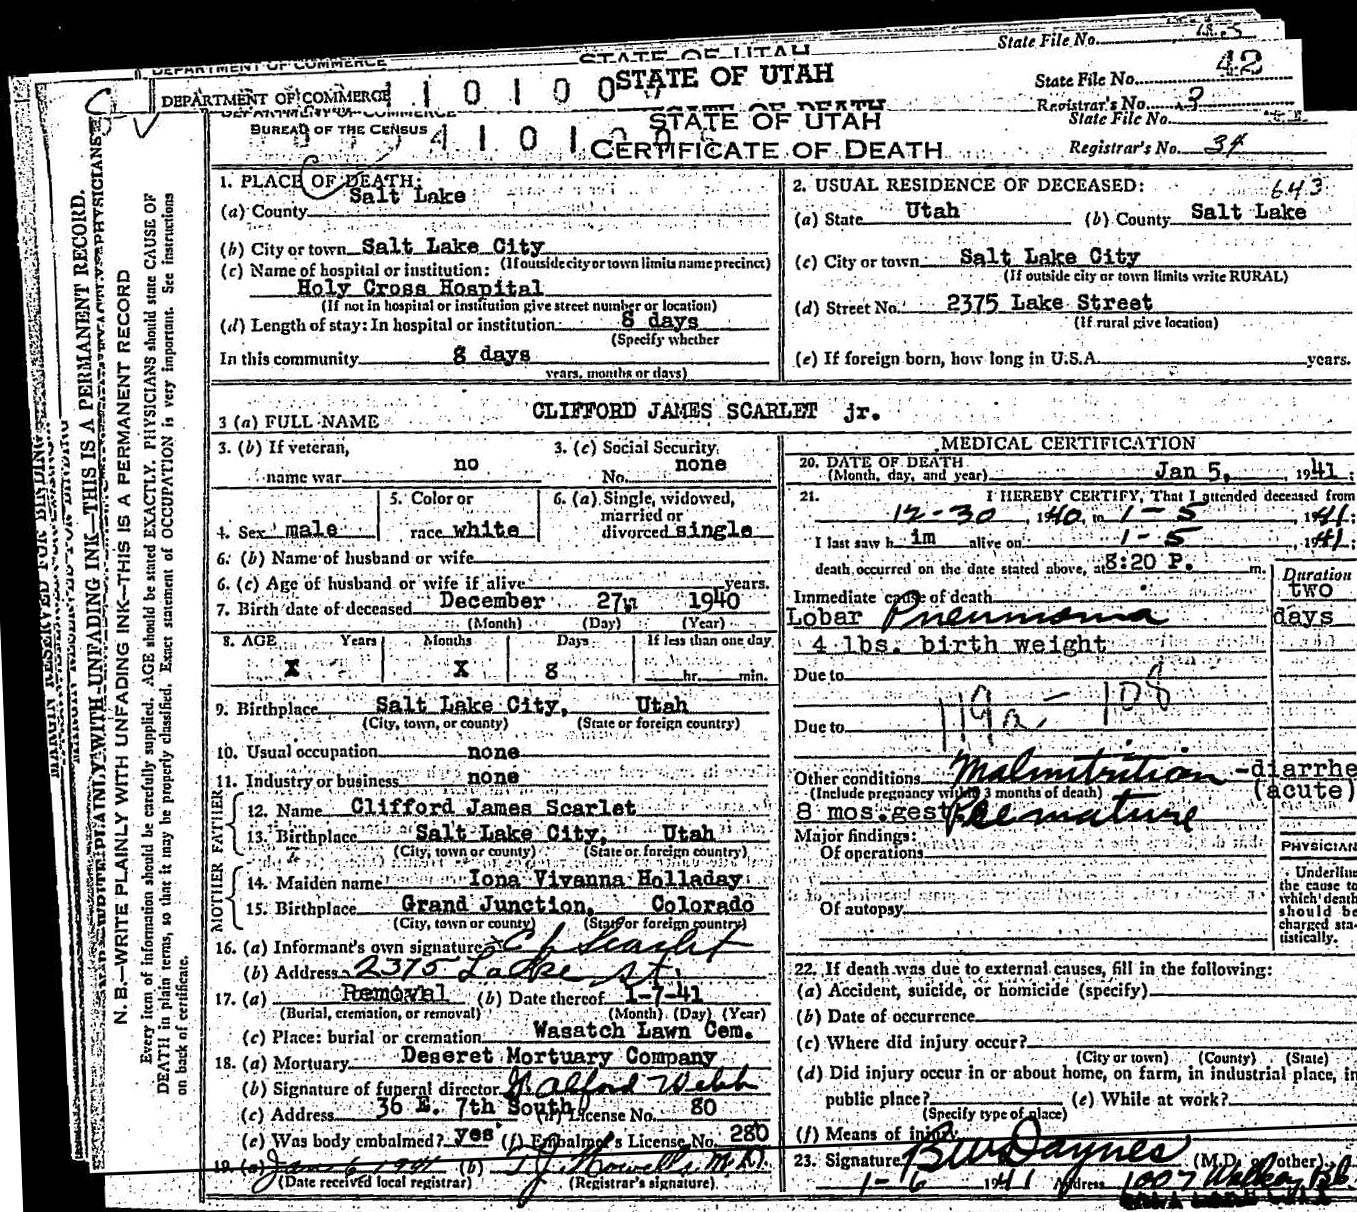 STATE OF UTAH
State File No.
DEPARTMENT OF COMMERCE
STATE OF UTAH
State File No. 42
DEPARTMENT OF COMMERCE
Registrar's No. 3
STATE OF UTAH
State File No.
BUREAU OF THE CENSUS
CERTIFICATE OF DEATH
Registrar's No. 34
1. PLACE OF DEATH:
(a) County Salt Lake
(b) City or town Salt Lake City
(If outside city or town limits name precinct)
(c) Name of hospital or institution:
Holy Cross Hospital
(If not in hospital or institution give street number or location)
(d) Length of stay: In hospital or institution 8 days
(Specify whether
In this community 8 days
years, months or days)
2. USUAL RESIDENCE OF DECEASED: 643
(a) State Utah (b) County Salt Lake
(c) City or town Salt Lake City
(If outside city or town limits write RURAL)
(d) Street No. 2375 Lake Street
(If rural give location)
(e) If foreign born, how long in U.S.A. years.
3 (a) FULL NAME CLIFFORD JAMES SCARLET jr.
3. (b) If veteran, name war no
3. (c) Social Security No. none
4. Sex male
5. Color or race white
6. (a) Single, widowed, married or divorced single
6. (b) Name of husband or wife
6. (c) Age of husband or wife if alive years.
7. Birth date of deceased December 27 1940
(Month) (Day) (Year)
8. AGE Years Months Days If less than one day
X X 8 hr. min.
9. Birthplace Salt Lake City, Utah
(City, town, or county) (State or foreign country)
10. Usual occupation none
11. Industry or business none
FATHER
12. Name Clifford James Scarlet
13. Birthplace Salt Lake City, Utah
(City, town or county) (State or foreign country)
MOTHER
14. Maiden name Iona Vivanna Holladay
15. Birthplace Grand Junction, Colorado
(City, town or county) (State or foreign country)
16. (a) Informant's own signature C J Scarlet
(b) Address 2375 Lake St.
17. (a) Removal (b) Date thereof 1-7-41
(Burial, cremation, or removal) (Month) (Day) (Year)
(c) Place: burial or cremation Wasatch Lawn Cem.
18. (a) Mortuary Deseret Mortuary Company
(b) Signature of funeral director Webb
(c) Address 36 E. 7th South (d) License No. 80
(e) Was body embalmed? yes (f) Embalmer's License No. 280
19. (a) Jan 6 1941 (b) T. J. Howells M.D.
(Date received local registrar) (Registrar's signature)
MEDICAL CERTIFICATION
20. DATE OF DEATH
(Month, day, and year) Jan 5, 1941
21. I HEREBY CERTIFY, That I attended deceased from
12-30, 1940, to 1-5, 1941;
I last saw h im alive on 1-5, 1941;
death occurred on the date stated above, at 8:20 P. m.
Immediate cause of death
Duration
Lobar Pneumonia two days
4 lbs. birth weight
Due to
119a - 108
Due to
Other conditions Malnutrition - diarrhe
(Include pregnancy within 3 months of death) (acute)
8 mos. gest. Premature
Major findings:
Of operations
Of autopsy
PHYSICIAN
Underline
the cause to
which death
should be
charged sta-
tistically.
22. If death was due to external causes, fill in the following:
(a) Accident, suicide, or homicide (specify)
(b) Date of occurrence
(c) Where did injury occur?
(City or town) (County) (State)
(d) Did injury occur in or about home, on farm, in industrial place, in
public place? (e) While at work?
(Specify type of place)
(f) Means of injury
23. Signature B W Daynes (M.D. or other)
1-6 1941 Address 1007 Walker
MARGIN RESERVED FOR BINDING
WRITE PLAINLY WITH UNFADING INK—THIS IS A PERMANENT RECORD.
N. B.—WRITE PLAINLY WITH UNFADING INK—THIS IS A PERMANENT RECORD
Every item of information should be carefully supplied. AGE should be stated EXACTLY. PHYSICIANS should state CAUSE OF
DEATH in plain terms, so that it may be properly classified. Exact statement of OCCUPATION is very important. See instructions
on back of certificate.